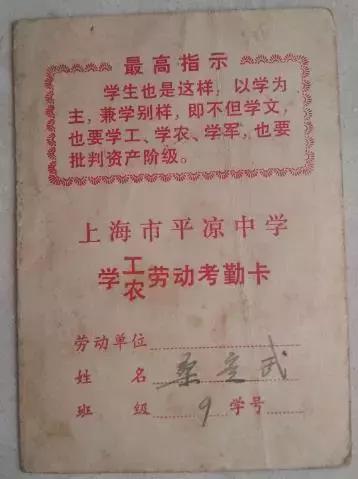 最高指示
学生也是这样，以学为
主，兼学别样，即不但学文，
也要学工、学农、学军，也要
批判资产阶级。
上海市平凉中学
学工农劳动考勤卡
劳动单位
姓名 桑定武
班级 9 学号